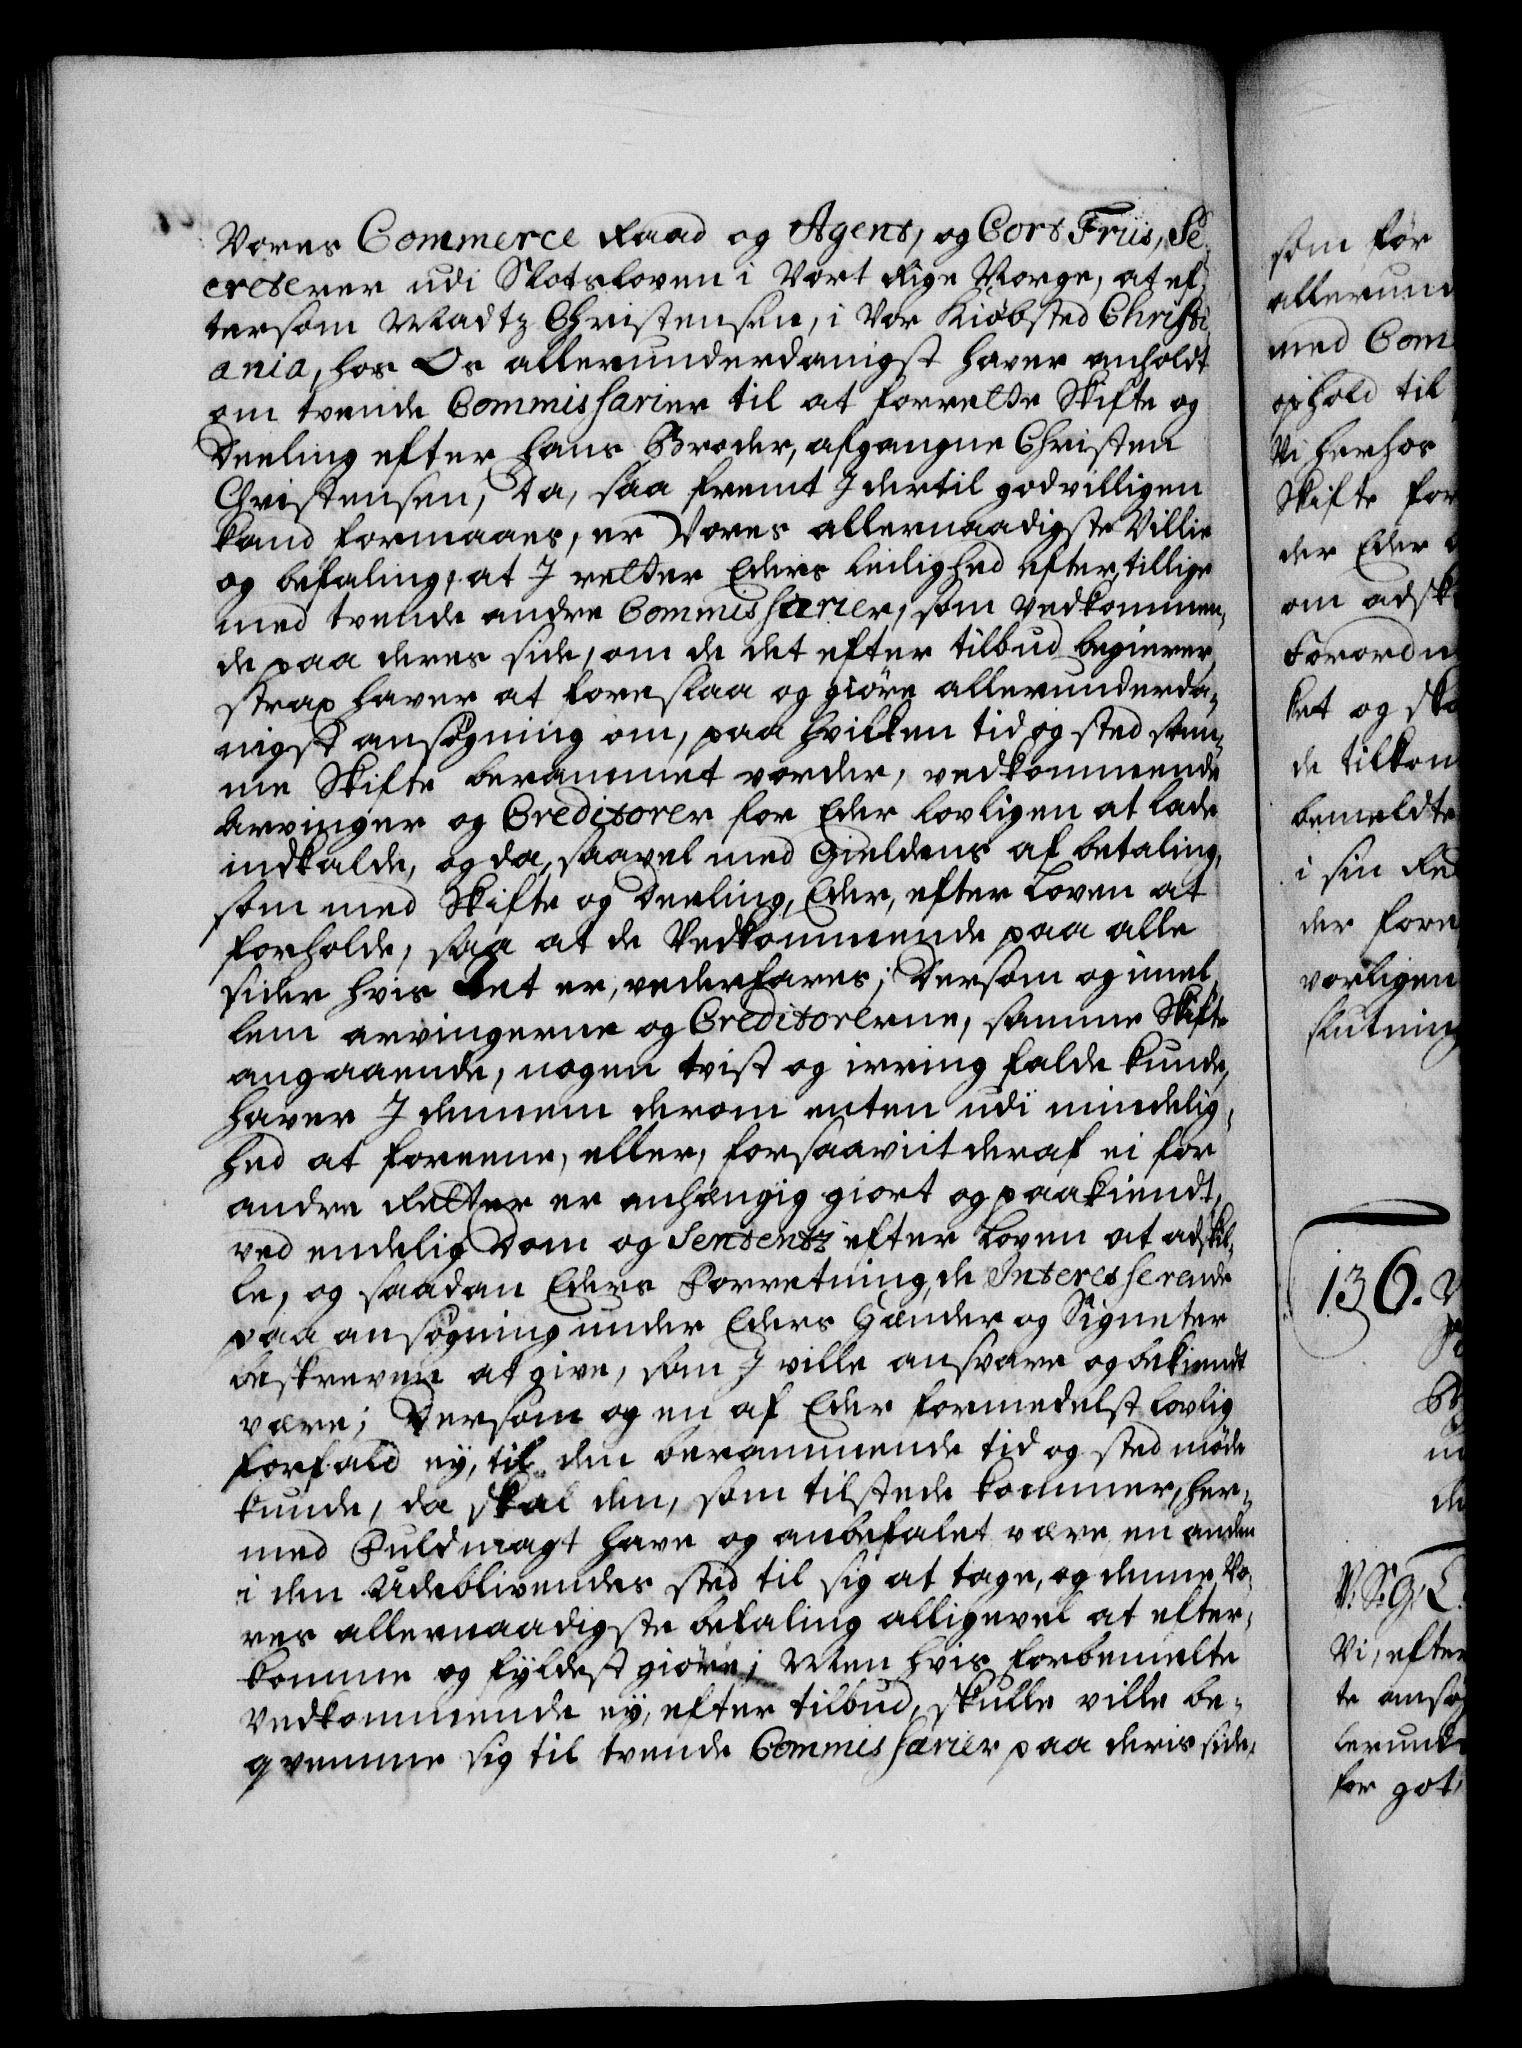 Vores Commerce Raad og Agent, og Cort Friis, Se-
creterer udi Slotsloven i Vort Rige Norge, at ef-
tersom Madtz Christensen, i Vor Kiøbsted Christi-
ania, hos Os allerunderdanigst haver anholdt
om tvende Commissarier til at forrette Skifte og
Deeling efter hans Broder, afgangne Christen
Christensen, Da, saa fremt I dertil godvilligen
kand formaaes, er Vores allernaadigste Villie
og befaling, at I retter Eders leilighed efter, tillige
med tvende andre Commissarier, som vedkommen-
de paa deres side, om de det efter tilbud begierer,
strax haver at foreslaa og giöre allerunderda-
nigst ansøgning om, paa hvilken tid og sted sam-
me Skifte berammet vorder, vedkommende
arvinger og Creditorer for Eder lovligen at lade
indkalde, og da, saavel med Gieldens af betaling,
som med Skifte og Deeling, Eder, efter Loven at
forholde, saa at de Vedkommende paa alle
sider hvis Ret er, vederfares; Dersom og imel-
lem arvingerne og Creditorerne, samme Skifte
angaaende, nogen tvist og irring falde kunde,
haver I dennem derom enten udi mindelig-
hed at foreene, eller, forsaaviit deraf ei for
andre Retter er anhængig giort og paakiendt,
ved endelig Dom og Sententz efter Loven at adskil-
le, og saadan Eders Forretning, de Interesserende
paa ansøgning under Eders Hænder og Signeter
beskreven at give, som I ville ansvare og bekiendt
være; Dersom og en af Eder formedelst lovlig
forfald ey, til den berammende tid og sted møde
kunde, da skal den, som tilstede kommer, her-
med Fuldmagt have og anbefalet være, en anden
i den Udeblivendes sted til sig at tage, og denne Vo-
res allernaadigste befaling alligevel at efter-
komme og fyldest giöre; Men hvis forbemelte
Vedkommende ey, efter tilbud, skulle ville be-
qvemme sig til tvende Commissarier paa deris side,
som før
allerund
med Com
ophold til
Vi herhos
Skifte for
der Eder
om adsk
Forordn
ket og ska
de tilkom
bemeldte
i sin Re
der fore
vorligen
slutning
136.
V. S. G. T.
Vi, efter
te ansøg
lerund
for got,